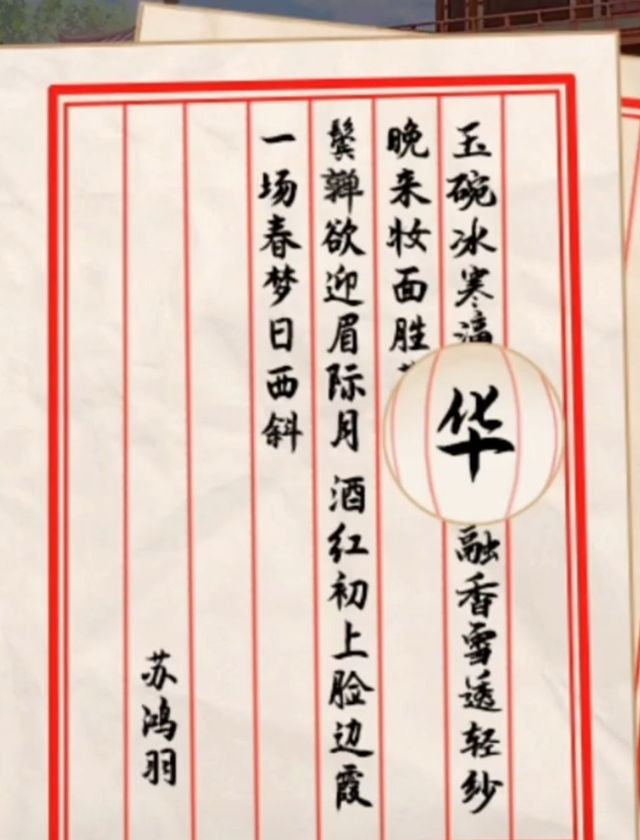 玉碗冰寒滴华融香雪透轻纱
晚来妆面胜
鬓亸欲迎眉际月 酒红初上脸边霞
一场春梦日西斜
苏鸿羽